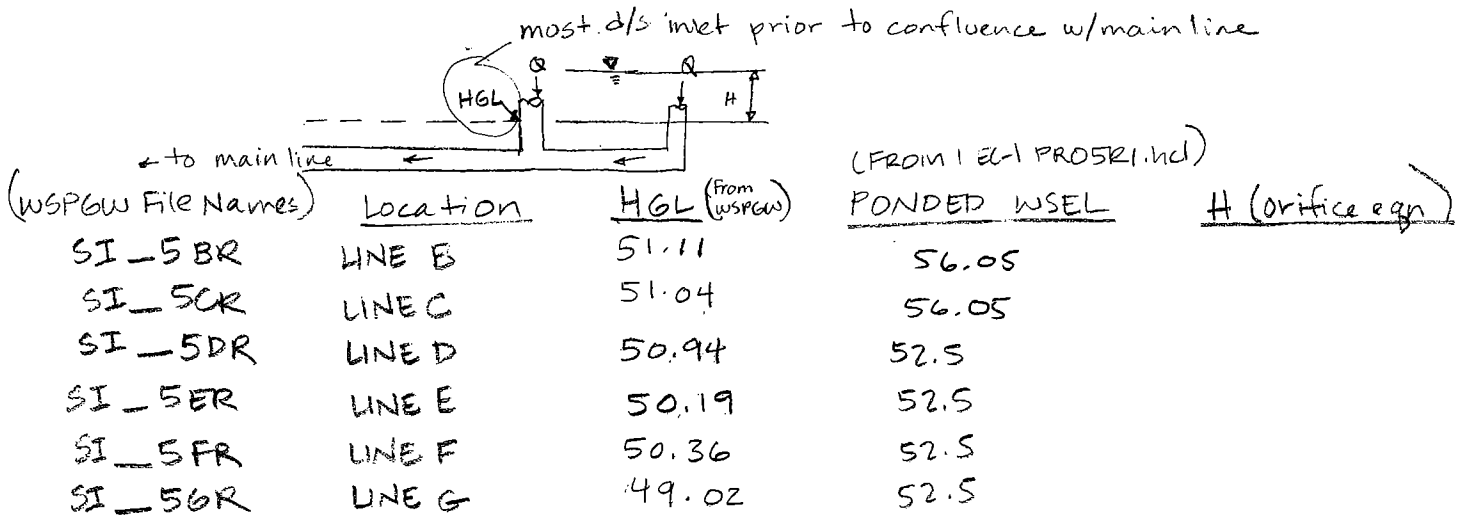 most d/s inlet prior to confluence w/main line
Q Q
HGL H
← to main line
(FROM HEC-1 PRO5R1.hcl)
(WSPGW File Names) Location HGL (From WSPGW) PONDED WSEL H (orifice eqn)
SI_5BR LINE B 51.11 56.05
SI_5CR LINE C 51.04 56.05
SI_5DR LINE D 50.94 52.5
SI_5ER LINE E 50.19 52.5
SI_5FR LINE F 50.36 52.5
SI_5GR LINE G 49.02 52.5